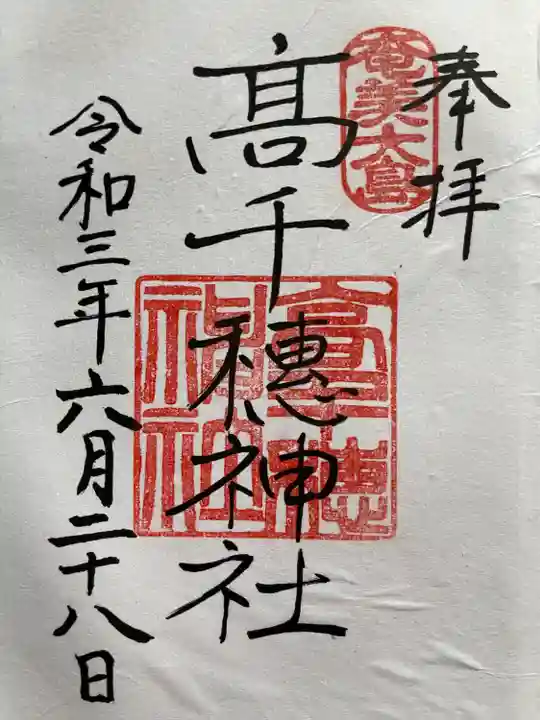 奉拝
奄美大島
髙千穗神社
高千穂神社
令和三年六月二十八日